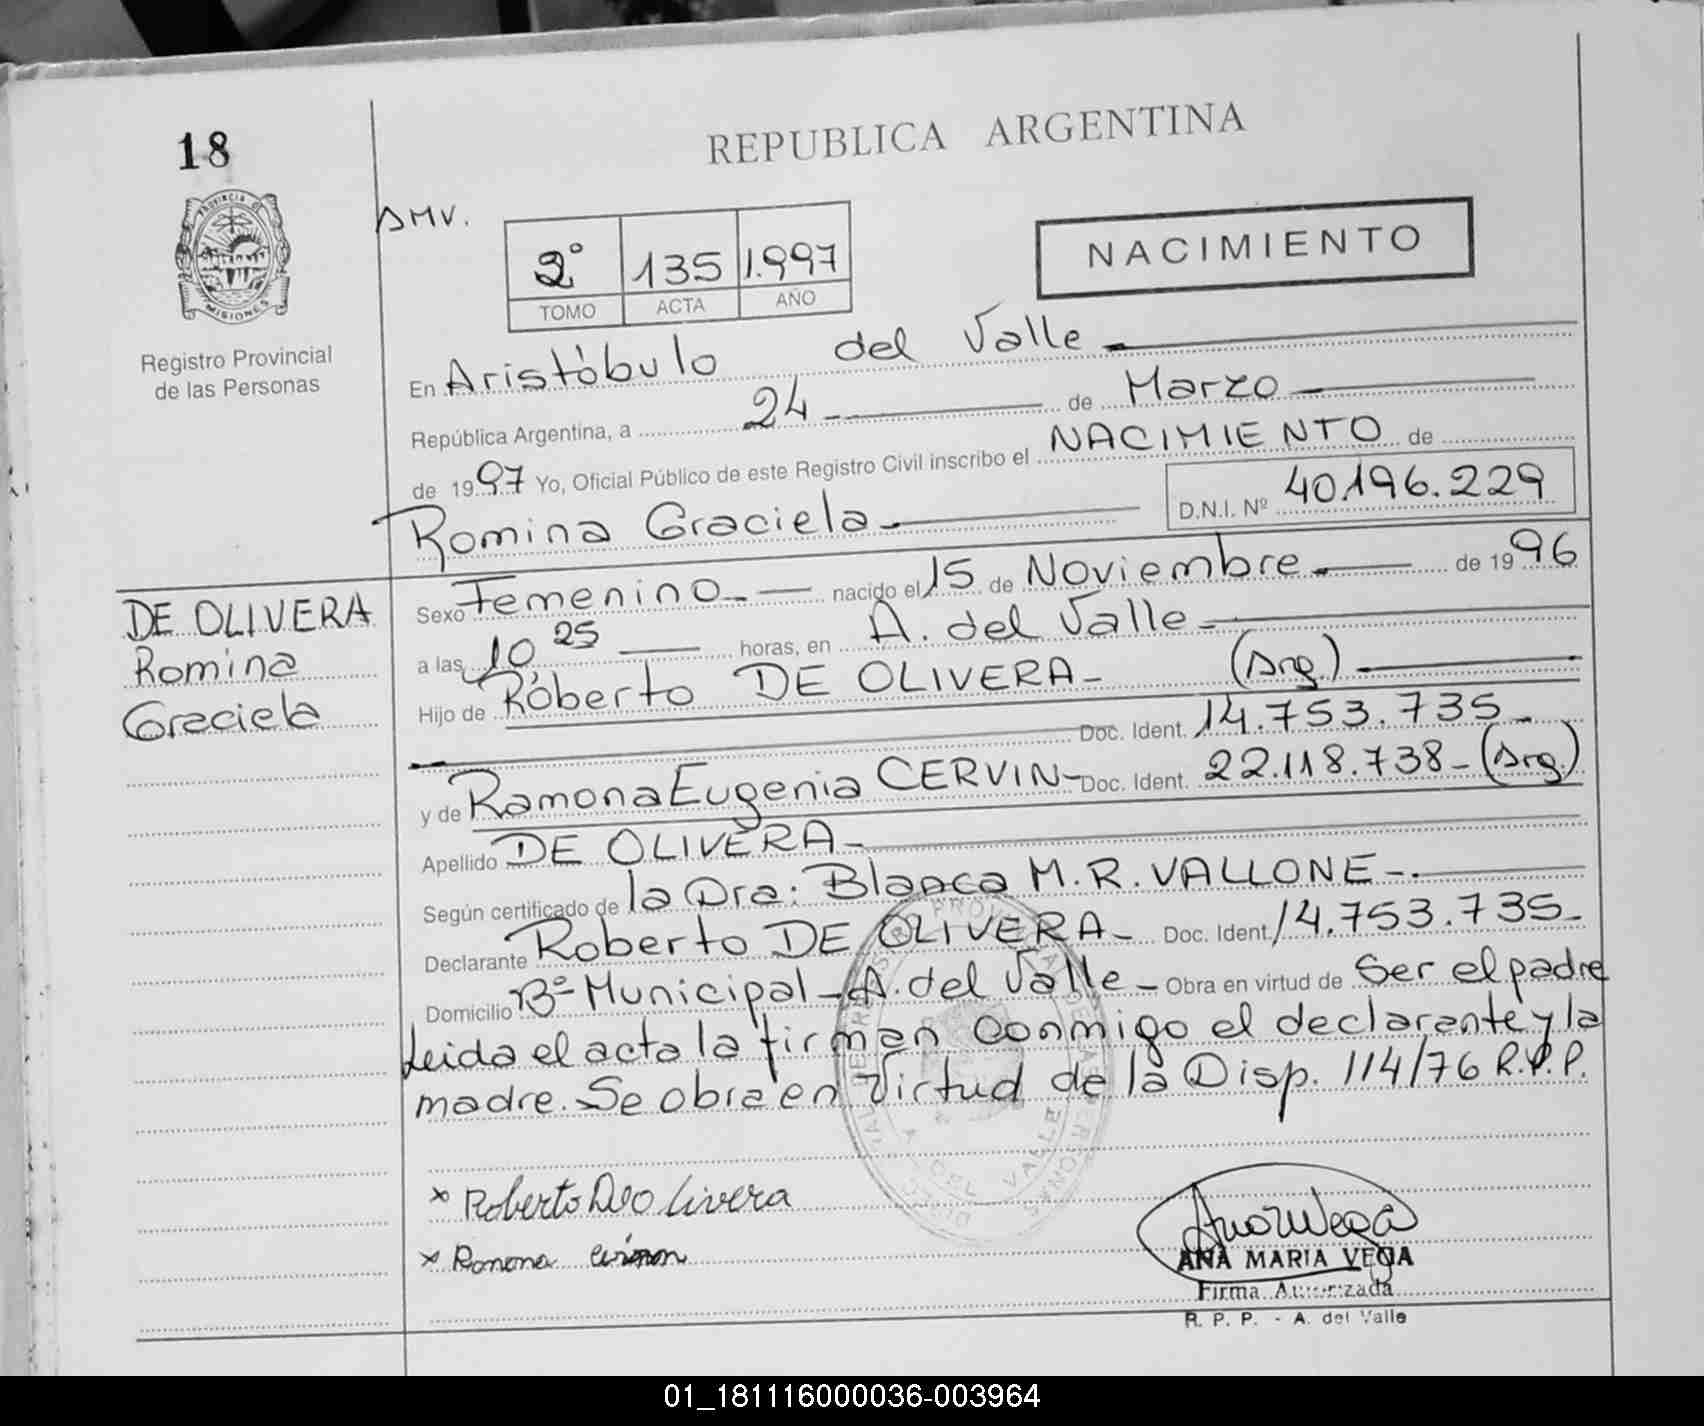 18
REPUBLICA ARGENTINA
PROVINCIA DE
MISIONES
Registro Provincial
de las Personas
AMV.
2° 135 1.997
TOMO ACTA AÑO
NACIMIENTO
En Aristóbulo del Valle
República Argentina, a 24 de Marzo
de 1997 Yo, Oficial Público de este Registro Civil inscribo el NACIMIENTO de
Romina Graciela D.N.I. Nº 40.196.229
DE OLIVERA
Romina
Graciela
Sexo Femenino nacido el 15 de Noviembre de 1996
a las 10,25 horas, en A. del Valle
Hijo de Roberto DE OLIVERA (Arg.)
Doc. Ident. 14.753.735
y de Ramona Eugenia CERVIN Doc. Ident. 22.118.738 - (Arg)
Apellido DE OLIVERA
Según certificado de la Dra: Blanca M.R. VALLONE
Declarante Roberto DE OLIVERA Doc. Ident. 14.753.735
Domicilio Bº Municipal - A. del Valle - Obra en virtud de Ser el padre
Leida el acta la firman conmigo el declarante y la
madre. Se obra en Virtud de la Disp. 114/76 R.P.P.
x Roberto DeOlivera
x Ramona
ANA MARIA VEGA
Firma Autorizada
R. P. P. - A. del Valle
01_181116000036-003964